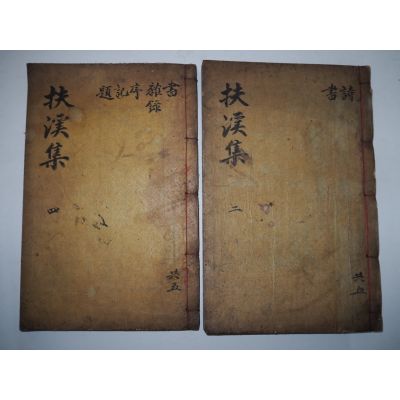 扶溪集
四
書雜錄序記題
共五
扶溪集
二
詩書
共五